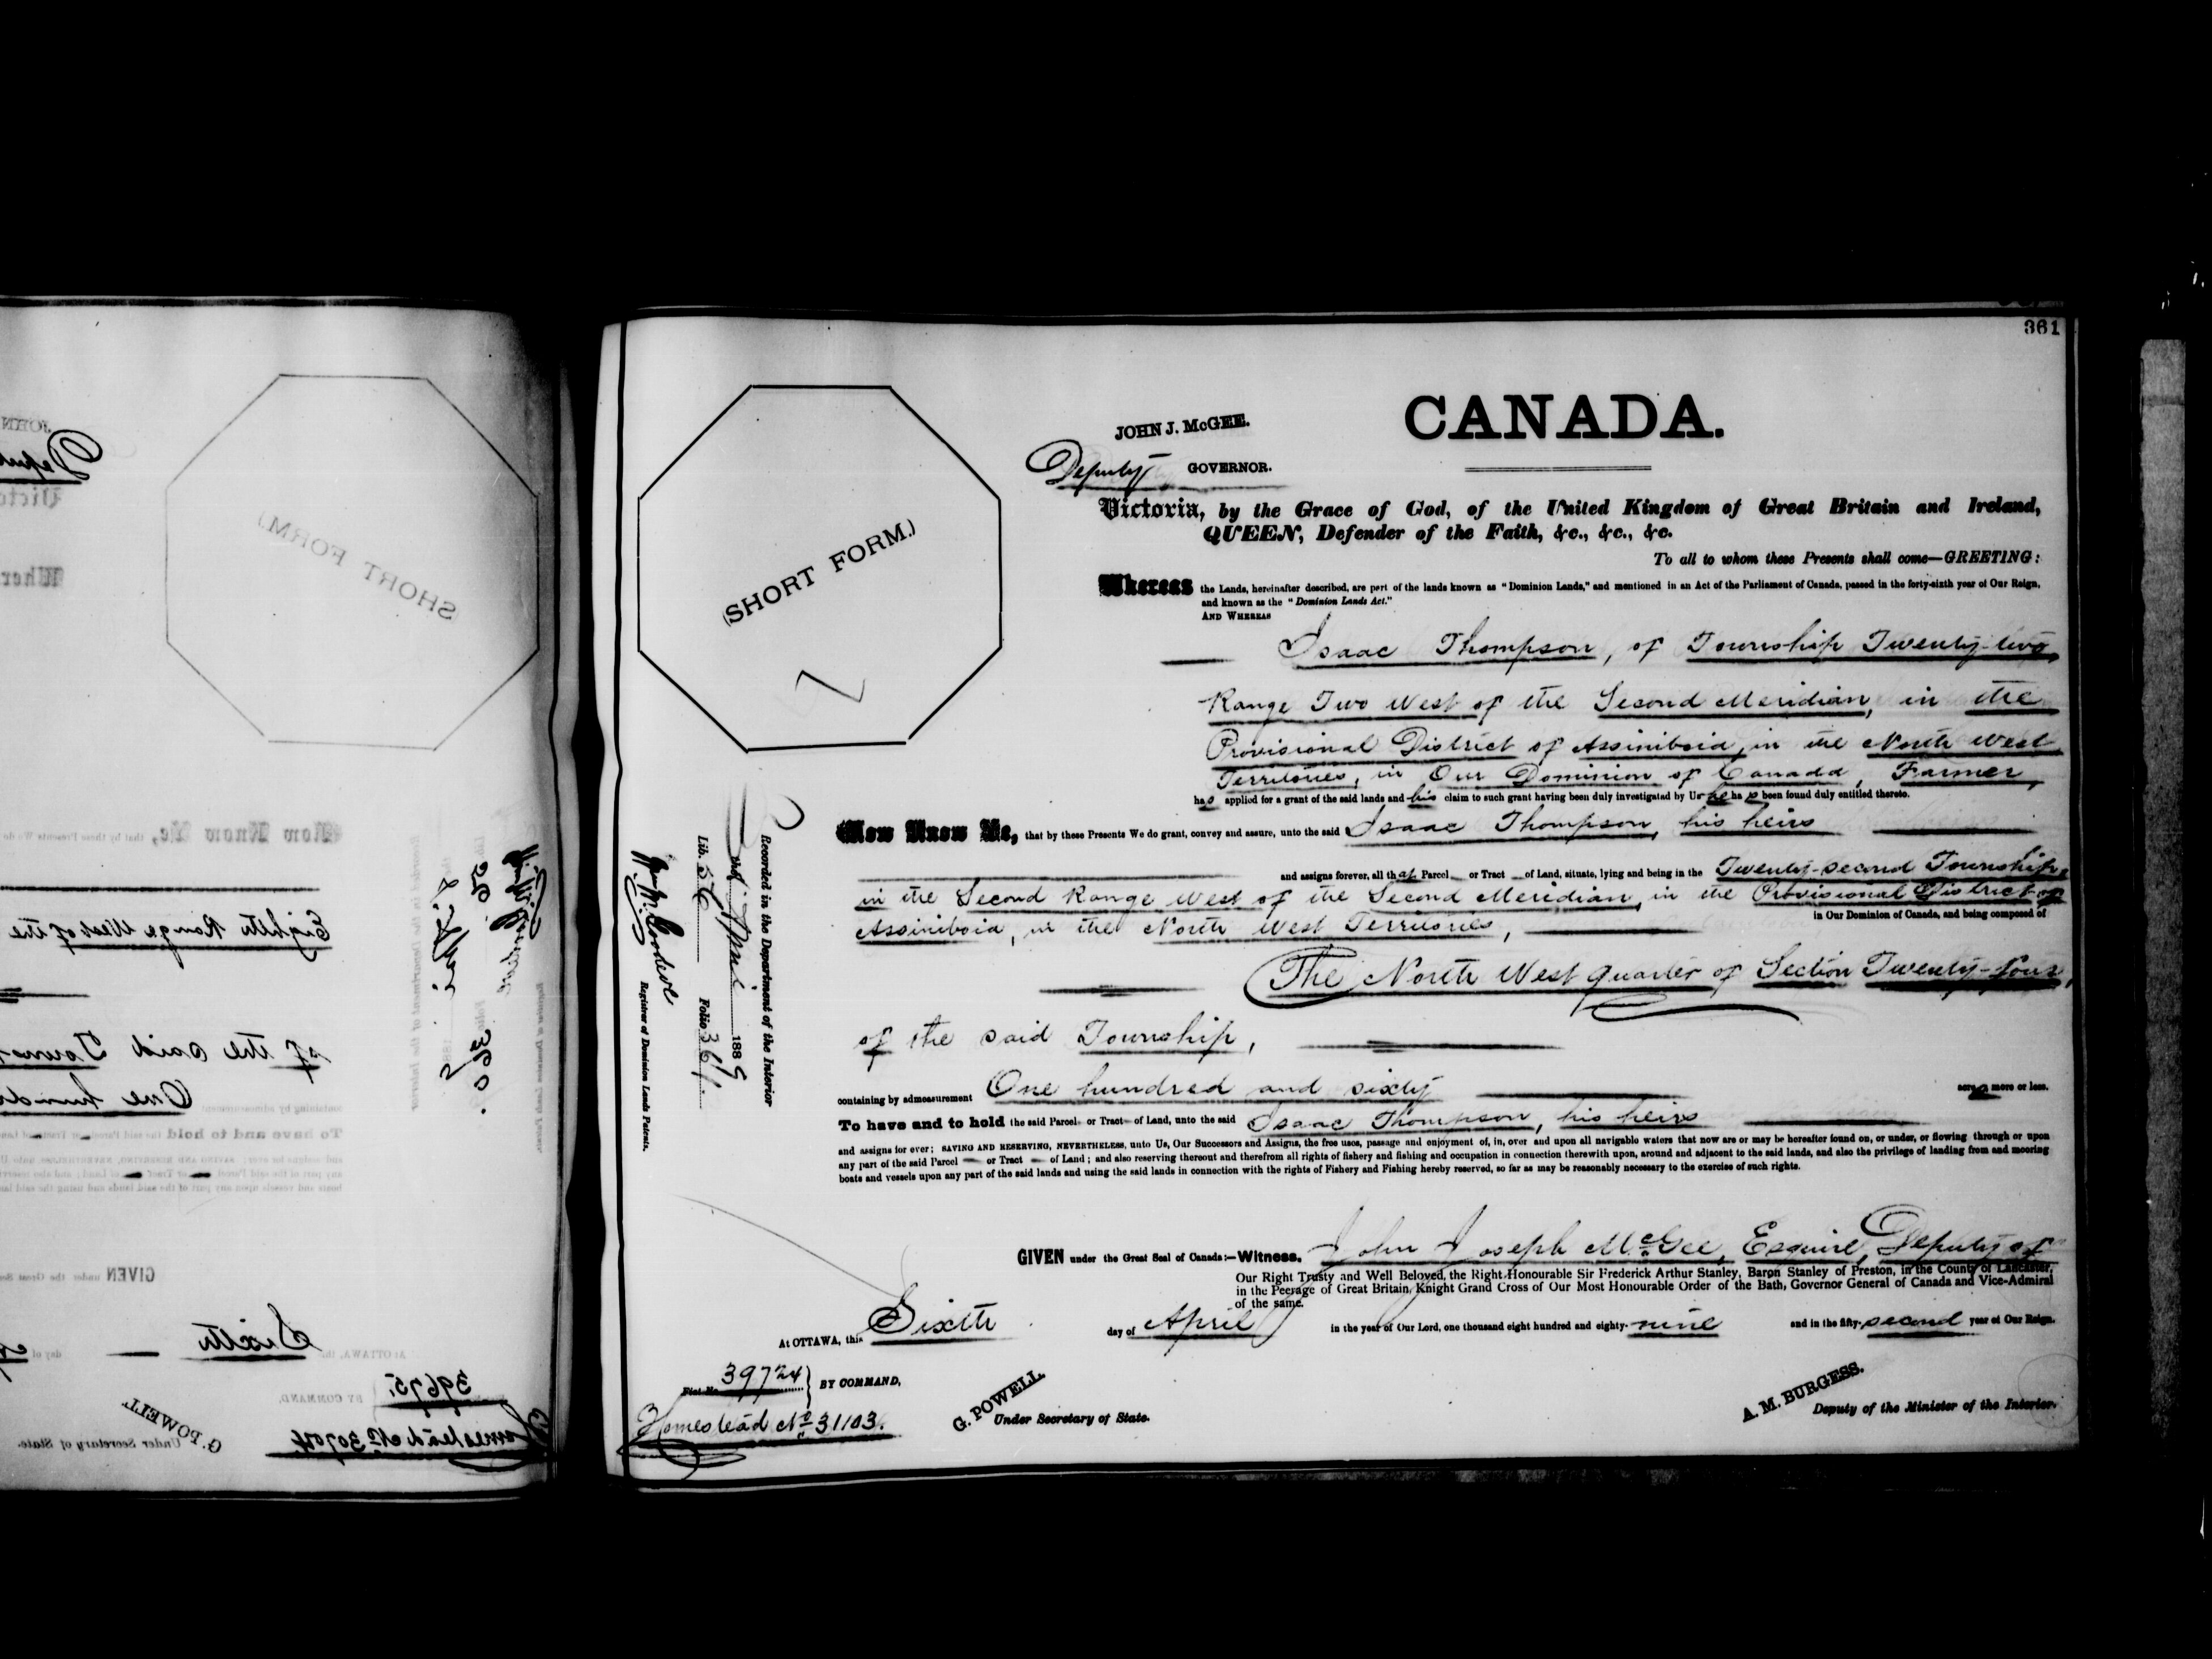 361
CANADA.
JOHN J. McGEE.
Deputy GOVERNOR.
(SHORT FORM.)
Victoria, by the Grace of God, of the United Kingdom of Great Britain and Ireland,
QUEEN, Defender of the Faith, &c., &c., &c.
To all to whom these Presents shall come—GREETING:
Whereas the Lands, hereinafter described, are part of the lands known as "Dominion Lands," and mentioned in an Act of the Parliament of Canada, passed in the forty-sixth year of Our Reign,
and known as the "Dominion Lands Act."
AND WHEREAS
Isaac Thompson, of Township Twenty-two,
Range Two West of the Second Meridian, in the
Provisional District of Assiniboia, in the North West
Territories, in Our Dominion of Canada, Farmer,
has applied for a grant of the said lands and his claim to such grant having been duly investigated by Us he has been found duly entitled thereto.
Now Know Ye, that by these Presents We do grant, convey and assure, unto the said Isaac Thompson, his heirs
and assigns forever, all that Parcel or Tract of Land, situate, lying and being in the Twenty-second Township,
in the Second Range West of the Second Meridian, in the Provisional District of
in Our Dominion of Canada, and being composed of
Assiniboia, in the North West Territories,
The North West quarter of Section Twenty-four,
of the said Township,
containing by admeasurement One hundred and sixty acres more or less.
To have and to hold the said Parcel or Tract of Land, unto the said Isaac Thompson, his heirs
and assigns for ever; SAVING AND RESERVING, NEVERTHELESS, unto Us, Our Successors and Assigns, the free uses, passage and enjoyment of, in, over and upon all navigable waters that now are or may be hereafter found on, or under, or flowing through or upon
any part of the said Parcel or Tract of Land; and also reserving thereout and therefrom all rights of fishery and fishing and occupation in connection therewith upon, around and adjacent to the said lands, and also the privilege of landing from and mooring
boats and vessels upon any part of the said lands and using the said lands in connection with the rights of Fishery and Fishing hereby reserved, so far as may be reasonably necessary to the exercise of such rights.
GIVEN under the Great Seal of Canada:—Witness, John Joseph McGee, Esquire, Deputy of
Our Right Trusty and Well Beloved, the Right Honourable Sir Frederick Arthur Stanley, Baron Stanley of Preston, in the County of Lancaster,
in the Peerage of Great Britain, Knight Grand Cross of Our Most Honourable Order of the Bath, Governor General of Canada and Vice-Admiral
of the same.
At OTTAWA, this Sixth day of April in the year of Our Lord, one thousand eight hundred and eighty-nine and in the fifty-second year of Our Reign.
39724 BY COMMAND,
Homestead No 31103.
G. POWELL.
Under Secretary of State.
A. M. BURGESS.
Deputy of the Minister of the Interior.
Recorded in the Department of the Interior
April 1889
Lib. 56 Folio 361.
Registrar of Dominion Lands Patents.